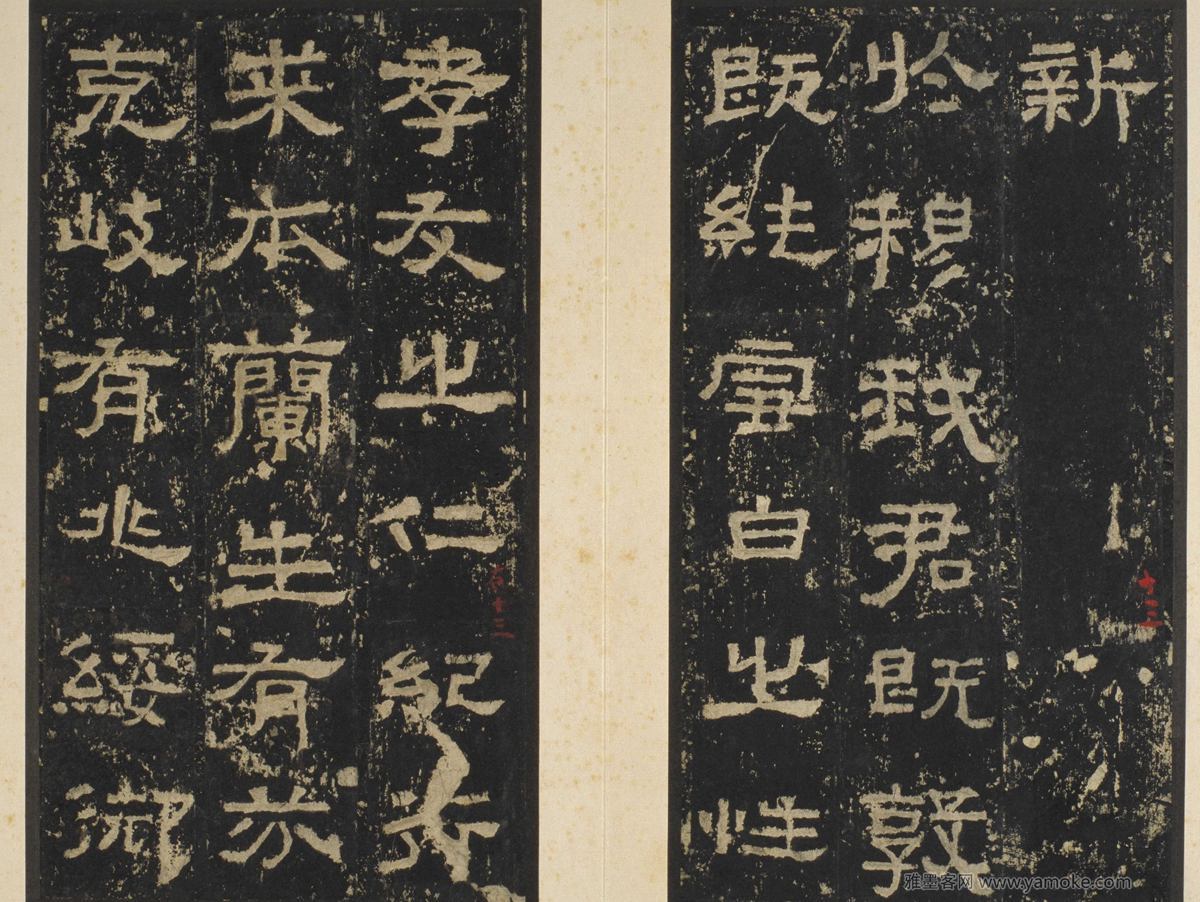 新
於穆我君既敦
既純雪白之性
孝友之仁紀行
来本蘭生有芬
克岐有兆綏御
雅墨客网 www.yamoke.com